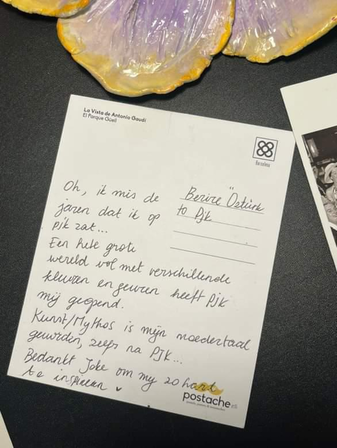 La Vista de Antonio Gaudí
El Parque Güell
Oh, ik mis de
jaren dat ik op
pjk zat...
Een hele grote
wereld vol met verschillende
kleuren en geuren heeft Pjk
mij geopend.
Kunst/Mythos is mijn moedertaal
geworden, zelfs na PJK...
Bedankt Joke om my zo hard
te inspireren
Öztürk
to Pjk
postache